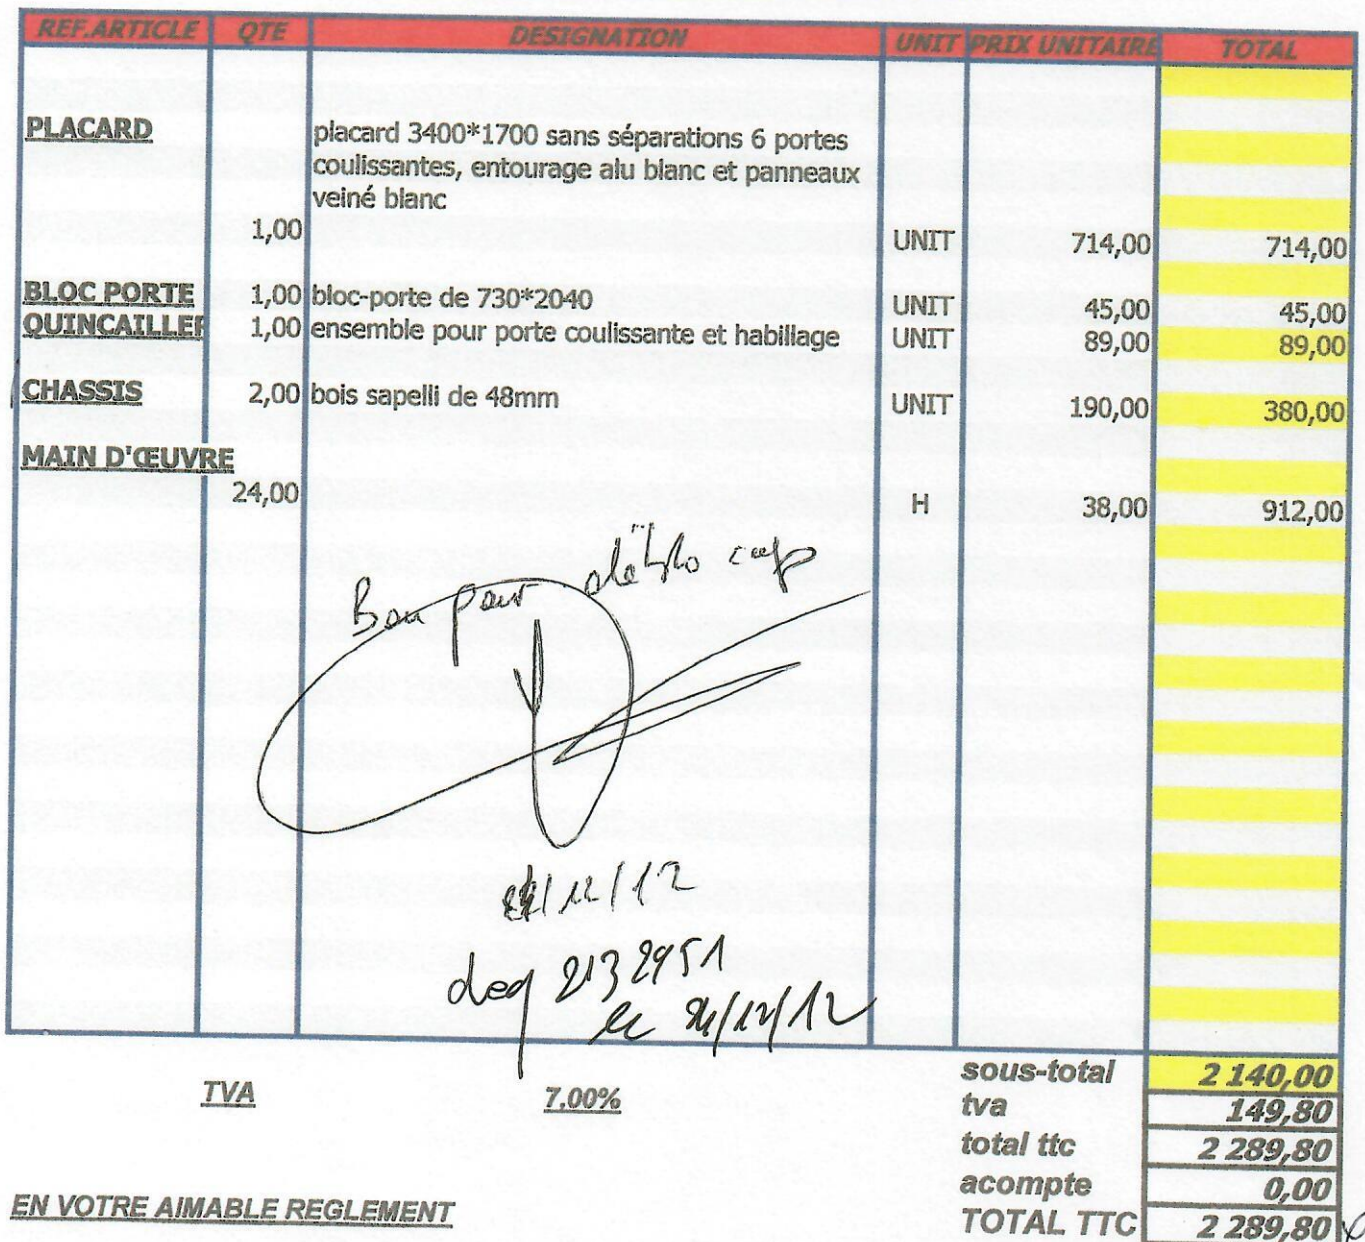 REF.ARTICLE QTE DESIGNATION UNIT PRIX UNITAIRE TOTAL
PLACARD placard 3400*1700 sans séparations 6 portes
coulissantes, entourage alu blanc et panneaux
veiné blanc
1,00 UNIT 714,00 714,00
BLOC PORTE 1,00 bloc-porte de 730*2040 UNIT 45,00 45,00
QUINCAILLER 1,00 ensemble pour porte coulissante et habillage UNIT 89,00 89,00
CHASSIS 2,00 bois sapelli de 48mm UNIT 190,00 380,00
MAIN D'ŒUVRE
24,00 H 38,00 912,00
Bon pour
/12
2132951
le /12/12
sous-total 2 140,00
TVA 7,00% tva 149,80
total ttc 2 289,80
acompte 0,00
EN VOTRE AIMABLE REGLEMENT TOTAL TTC 2 289,80